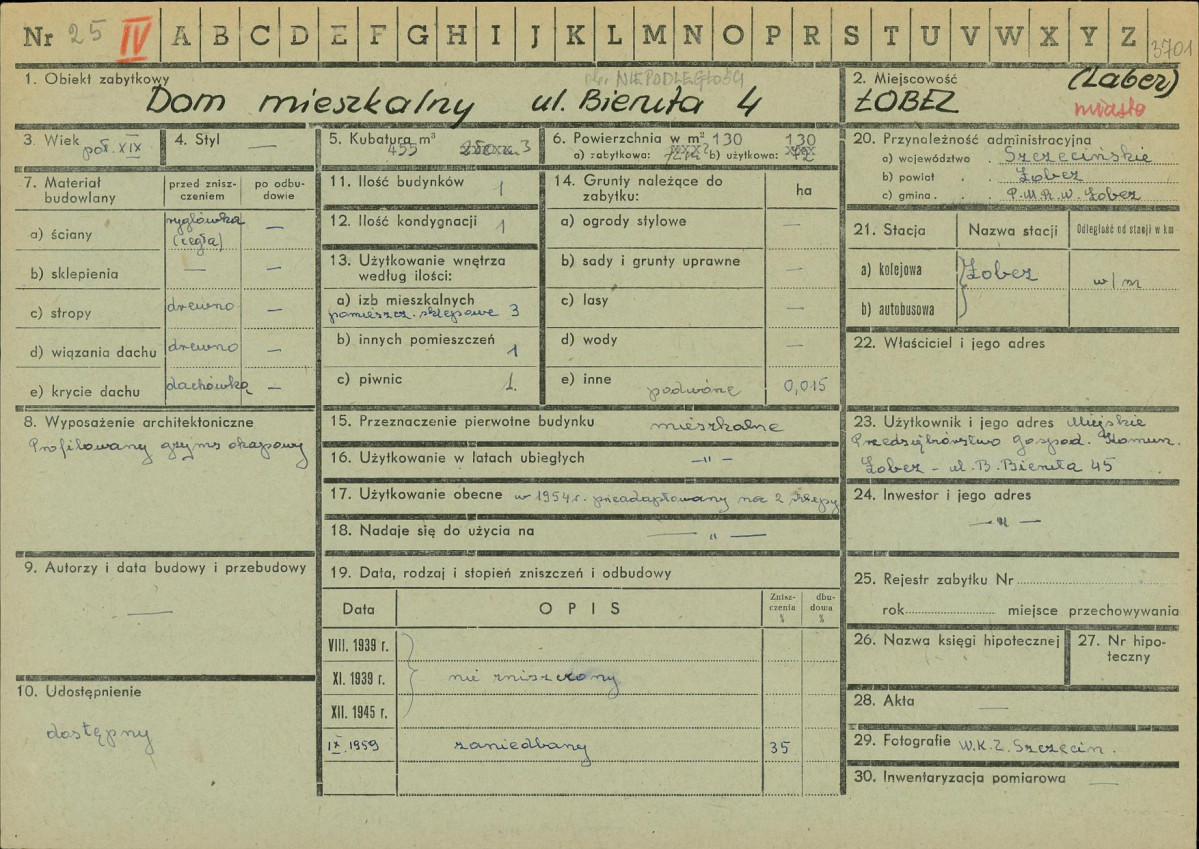 Nr 25 IV A B C D E F G H I J K L M N O P R S T U V W X Y Z 3701
1. Obiekt zabytkowy
NIEPODLEGŁOŚCI
Dom mieszkalny ul. Bieruta 4
2. Miejscowość (Labez)
ŁOBEZ miasto
3. Wiek poł. XIX
4. Styl —
5. Kubatura m³
455
6. Powierzchnia w m² 130 130
a) zabytkowa: b) użytkowa:
20. Przynależność administracyjna
a) województwo . Szczecińskie
b) powiat . . Łobez
c) gmina . . P.M.R.W. Łobez
7. Materiał budowlany
przed znisz-
czeniem
po odbu-
dowie
a) ściany ryglówka (cegła) —
b) sklepienia — —
c) stropy drewno —
d) wiązania dachu drewno —
e) krycie dachu dachówką —
11. Ilość budynków 1
12. Ilość kondygnacji 1
13. Użytkowanie wnętrza
według ilości:
a) izb mieszkalnych
pomieszcz. sklepowe 3
b) innych pomieszczeń 1
c) piwnic 1.
14. Grunty należące do
zabytku:
ha
a) ogrody stylowe —
b) sady i grunty uprawne —
c) lasy —
d) wody —
e) inne podwórze 0,015
21. Stacja
Nazwa stacji
Odległość od stacji w km
a) kolejowa
b) autobusowa
Łobez
w/m
22. Właściciel i jego adres
8. Wyposażenie architektoniczne
Profilowany gzyms okapowy
15. Przeznaczenie pierwotne budynku mieszkalne
16. Użytkowanie w latach ubiegłych —"—
17. Użytkowanie obecne w 1954 r. przeadaptowany na 2 sklepy
18. Nadaje się do użycia na — " —
23. Użytkownik i jego adres Miejskie
Przedsiębiorstwo Gospod. Komun.
Łobez – ul. B. Bieruta 45
24. Inwestor i jego adres
—"—
9. Autorzy i data budowy i przebudowy
—
19. Data, rodzaj i stopień zniszczeń i odbudowy
Data
OPIS
Znisz-
czenia
%
dbu-
dowa
%
VIII. 1939 r.
XI. 1939 r. nie zniszczony
XII. 1945 r.
IX. 1959 zaniedbany 35
25. Rejestr zabytku Nr
rok miejsce przechowywania
26. Nazwa księgi hipotecznej
27. Nr hipo-
teczny
10. Udostępnienie
dostępny
28. Akta —
29. Fotografie W.K.Z. Szczecin.
30. Inwentaryzacja pomiarowa —